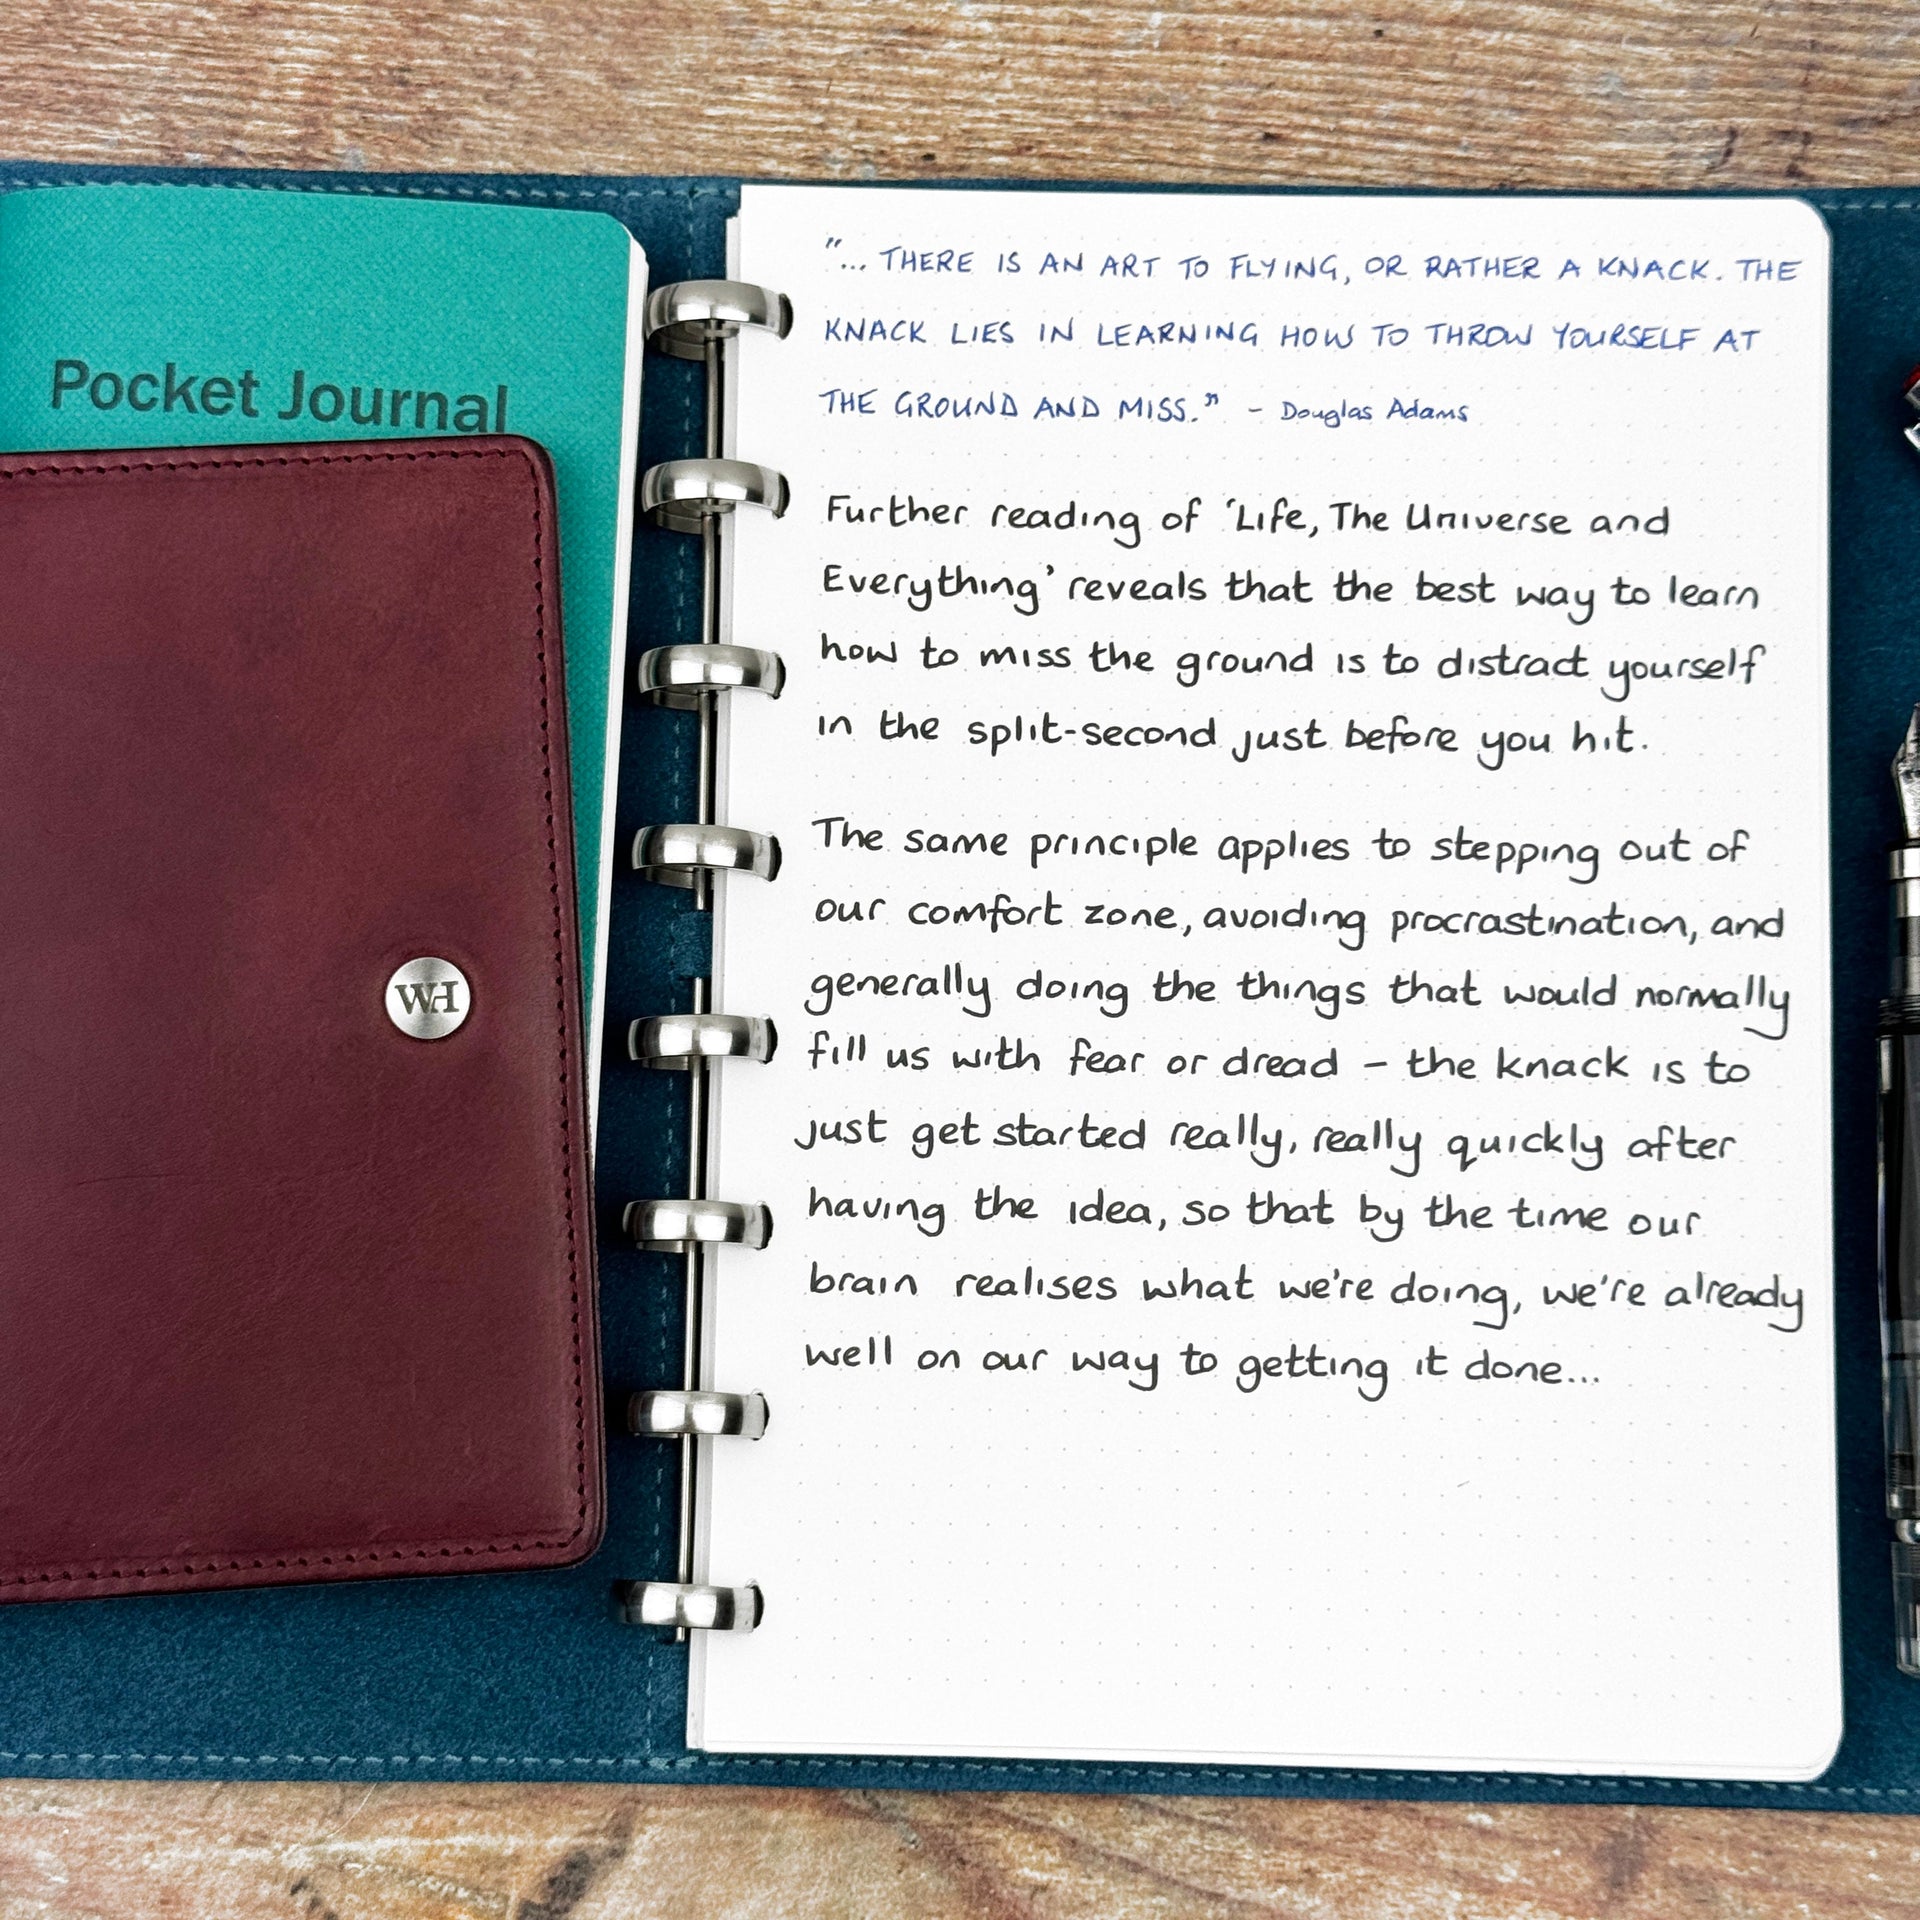 Pocket Journal
WH
"... THERE IS AN ART TO FLYING, OR RATHER A KNACK. THE
KNACK LIES IN LEARNING HOW TO THROW YOURSELF AT
THE GROUND AND MISS." - Douglas Adams
Further reading of 'Life, The Universe and
Everything' reveals that the best way to learn
how to miss the ground is to distract yourself
in the split-second just before you hit.
The same principle applies to stepping out of
our comfort zone, avoiding procrastination, and
generally doing the things that would normally
fill us with fear or dread – the knack is to
just get started really, really quickly after
having the idea, so that by the time our
brain realises what we're doing, we're already
well on our way to getting it done...